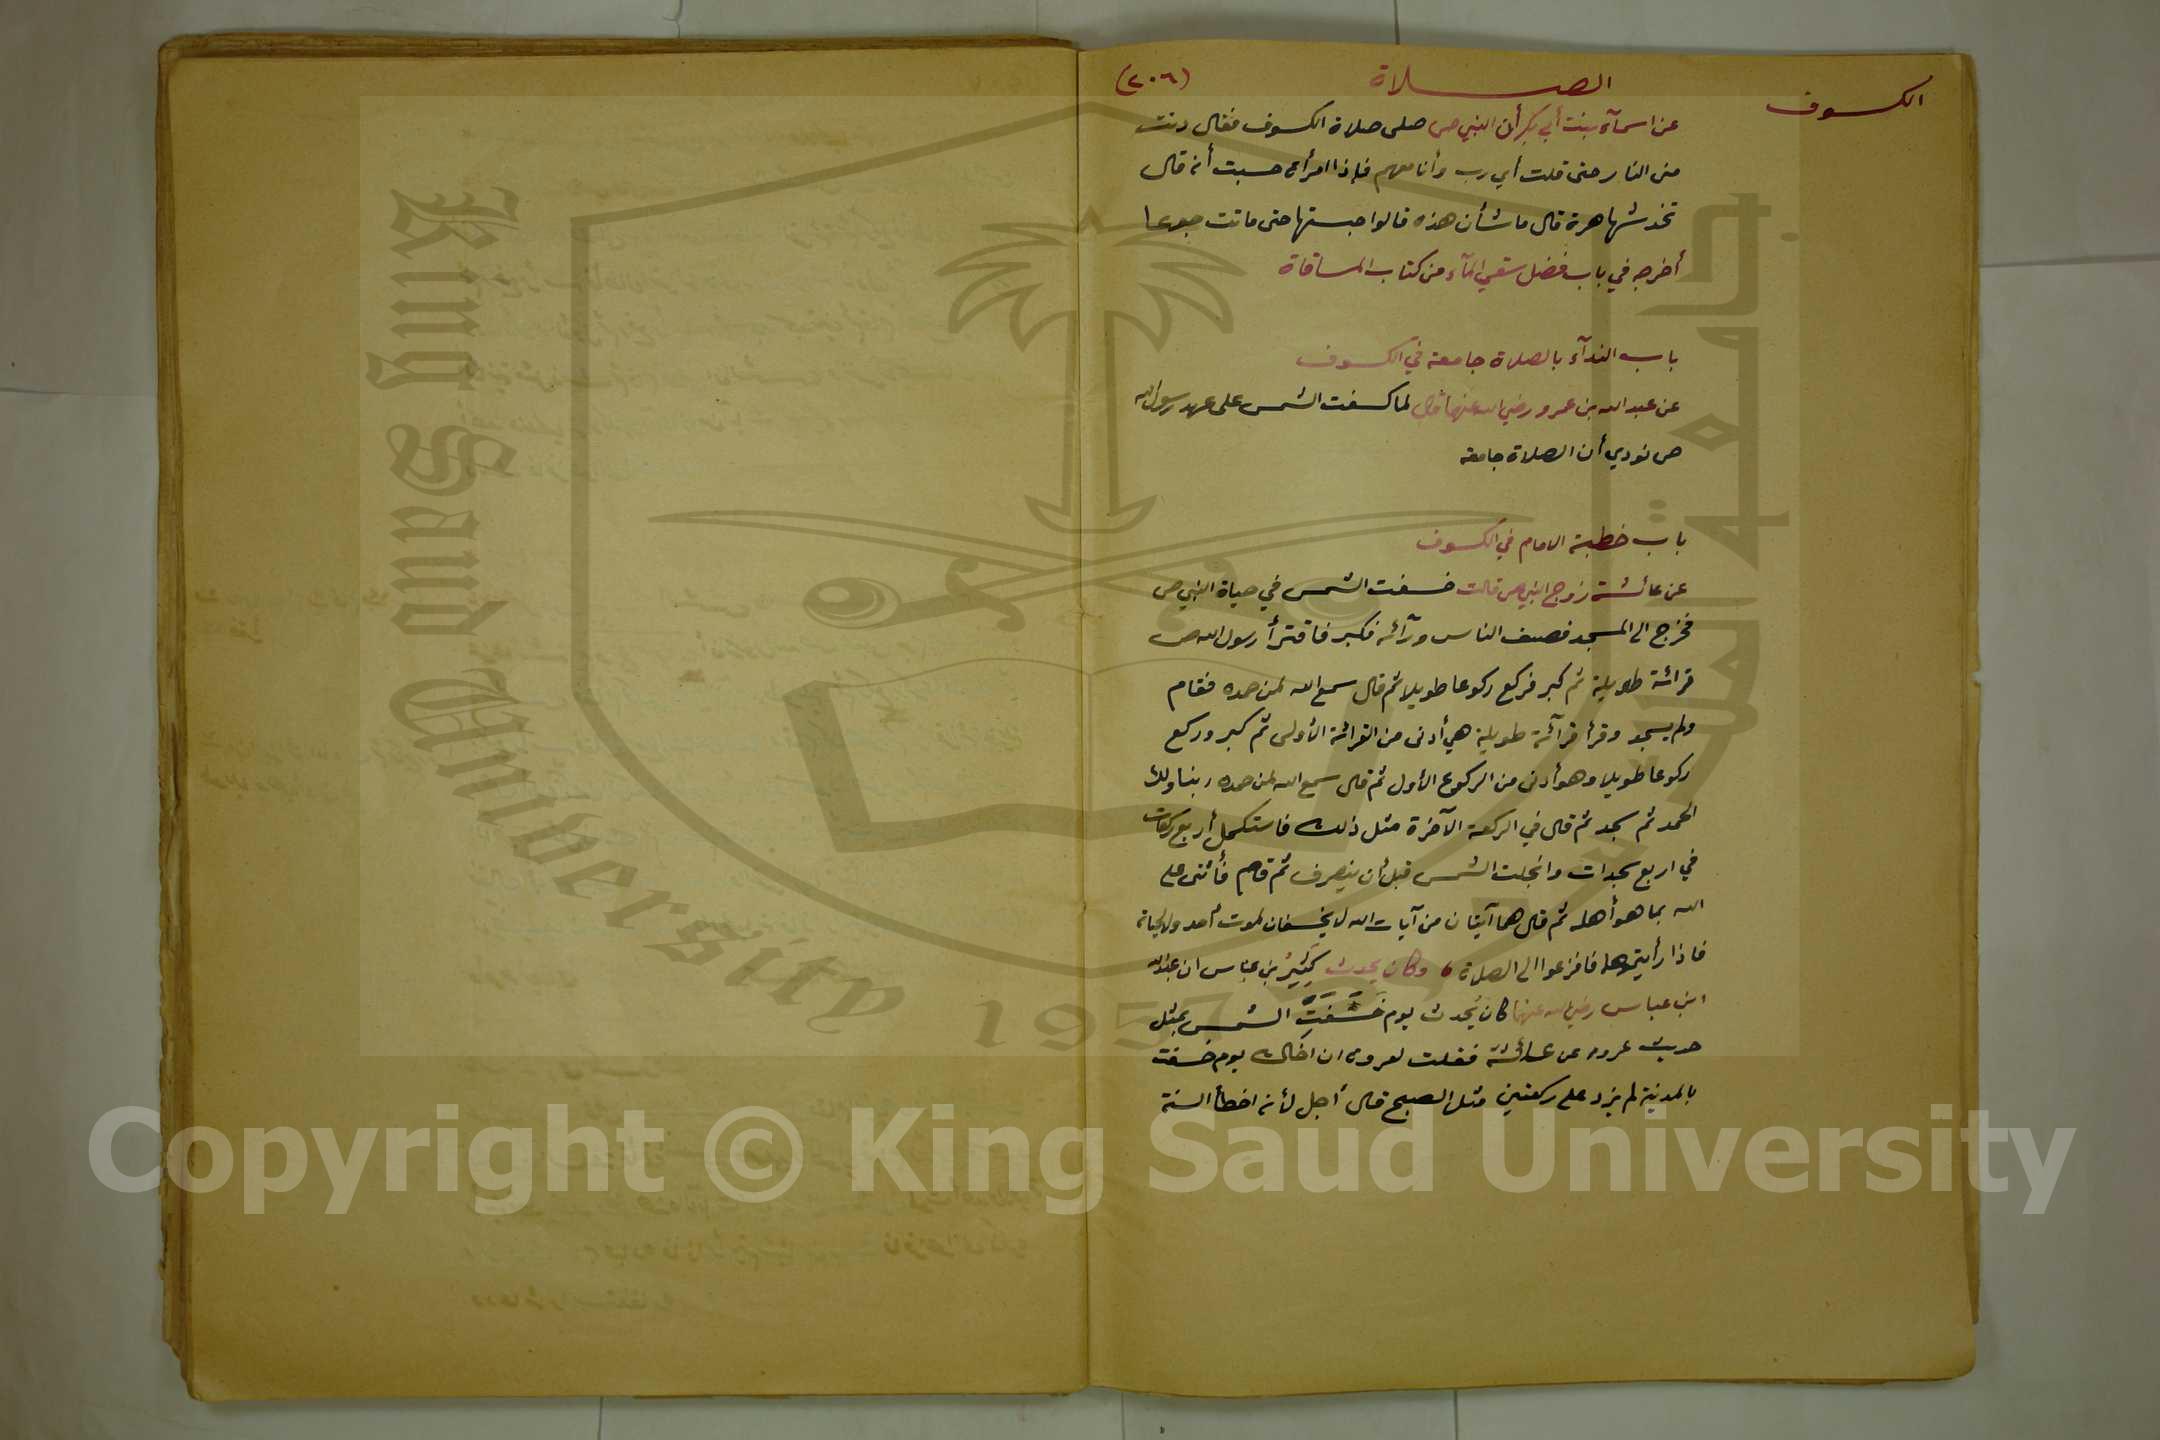 الكسوف
الصلاة
(٢٠٦)
عن اسمآء بنت أبي بكر أن النبي ص صلى صلاة الكسوف فقال دنت
مني النار حتى قلت أي رب وأنا معهم فإذا امرأة حسبت أنه قال
تخدشها هرة قال ما شأن هذه قالوا حبستها حتى ماتت جوعا
أخرجه في باب فضل سقي المآء من كتاب المساقاة
باب الندآء بالصلاة جامعة في الكسوف
عن عبد الله بن عمرو رضي الله عنهما قال لما كسفت الشمس على عهد رسول الله
ص نودي أن الصلاة جامعة
باب خطبة الامام في الكسوف
عن عائشة زوج النبي ص قالت خسفت الشمس في حياة النبي ص
فخرج الى المسجد فصف الناس ورآئه فكبر فاقترأ رسول الله ص
قرائة طويلة ثم كبر فركع ركوعا طويلا ثم قال سمع الله لمن حمده فقام
ولم يسجد وقرأ قرآئة طويلة هي أدنى من القرائة الأولى ثم كبر وركع
ركوعا طويلا وهو أدنى من الركوع الأول ثم قال سمع الله لمن حمده ربنا ولك
الحمد ثم سجد ثم قال في الركعة الآخرة مثل ذلك فاستكمل أربع ركعات
في اربع سجدات وانجلت الشمس قبل أن ينصرف ثم قام فأثنى على
الله بما هو أهله ثم قال هما آيتان من آيات الله لا يخسفان لموت أحد ولا لحياته
فاذا رأيتموها فافزعوا الى الصلاة ، وكان يحدث كَثِيرُ بن عباس ان عبدالله
ابن عباس رضي الله عنهما كان يُحدث يوم خَسَفَتِ الشمس بمثل
حديث عروة عن عائشة فقلت لعروة ان اخاك يوم خسفت
بالمدينة لم يزد على ركعتين مثل الصبح قال أجل لأنه اخطأ السنة
King Saud University
1957
Copyright © King Saud University